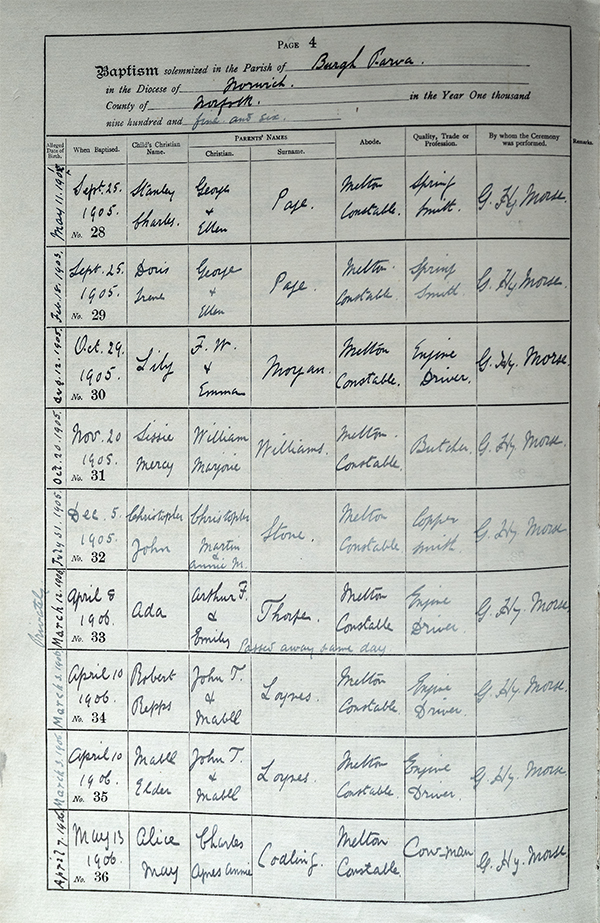 PAGE 4
Baptism solemnized in the Parish of Burgh Parva.
in the Diocese of Norwich.
County of Norfolk. in the Year One thousand
nine hundred and five and six.
Alleged Date of Birth. When Baptised. Child's Christian Name. PARENTS' NAMES Christian. Surname. Abode. Quality, Trade or Profession. By whom the Ceremony was performed. Remarks.
May 11. 1905. Sept. 25. Stanley George Page. Melton Spring G. Hy. Morse.
1905. Charles. & Constable. Smith.
No. 28 Ellen
Feb. 18. 1903. Sept. 25. Doris George Page. Melton Spring G. Hy. Morse.
1905. Irene & Constable. Smith.
No. 29 Ellen
Aug. 12. 1905. Oct. 29. Lily F. W. Morgan. Melton Engine G. Hy. Morse.
1905. & Constable. Driver.
No. 30 Emma
Oct. 20. 1905. Nov. 20 Sissie William Williams. Melton Butcher G. Hy. Morse.
1905. Mercy Marjorie Constable.
No. 31
July 31. 1905. Dec. 5. Christopher Christopher Stone. Melton Copper G. Hy. Morse
1905. John Martin Constable Smith.
No. 32 & Annie M.
Privately
March 12. 1906 April 8 Ada Arthur F. Thorpe. Melton Engine G. Hy. Morse
1906. & Constable Driver
No. 33 Emily Passed away same day
March 3. 1906 April 10 Robert John T. Loynes. Melton Engine G. Hy. Morse.
1906. Repps & Constable. Driver.
No. 34 Mabel
March 3. 1906 April 10 Mabel John T. Loynes. Melton Engine G. Hy. Morse
1906. Elder & Constable. Driver.
No. 35 Mabel
April 7. 1906 May 13 Alice Charles Codling. Melton Cow-man G. Hy. Morse
1906. May Agnes Annie Constable.
No. 36